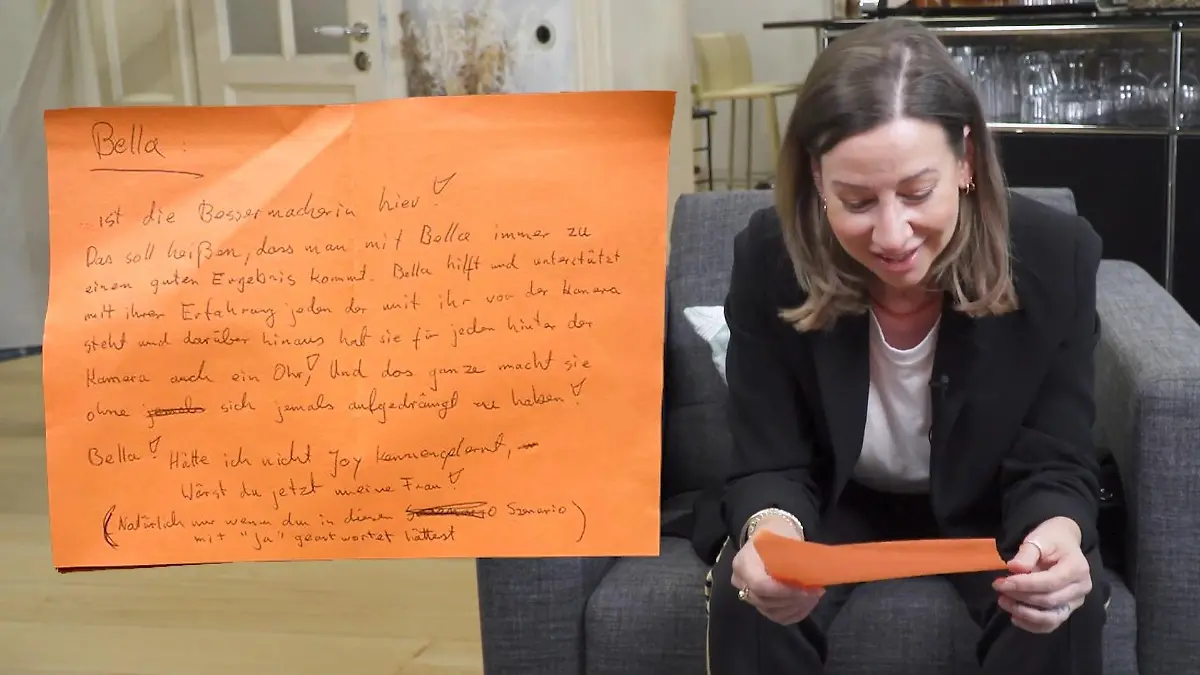 Bella :
..ist die Bessermacherin hier!
Das soll heißen, dass man mit Bella immer zu
einen guten Ergebnis kommt. Bella hilft und unterstützt
mit ihrer Erfahrung jeden der mit ihr vor der Kamera
steht und darüber hinaus hat sie für jeden hinter der
Kamera auch ein Ohr! Und das ganze macht sie
ohne jemals sich jemals aufgedrängt zu haben!
Bella! Hätte ich nicht Joy kennengelernt,
Wärst du jetzt meine Frau!
(Natürlich nur wenn du in diesen Szenario)
mit "Ja" geantwortet hättest